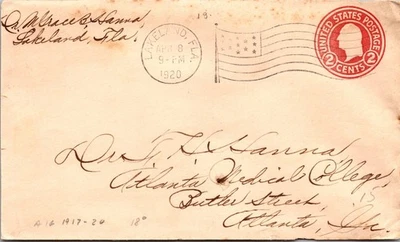 18-
Hanna
Lakeland, Fla.
LAKELAND, FLA.
APR 8
9-PM
1920
UNITED STATES POSTAGE
2 CENTS 2
Hanna
Atlanta Medical College
Butler Street,
Atlanta, Ga.
15
A16 1917-20 18°